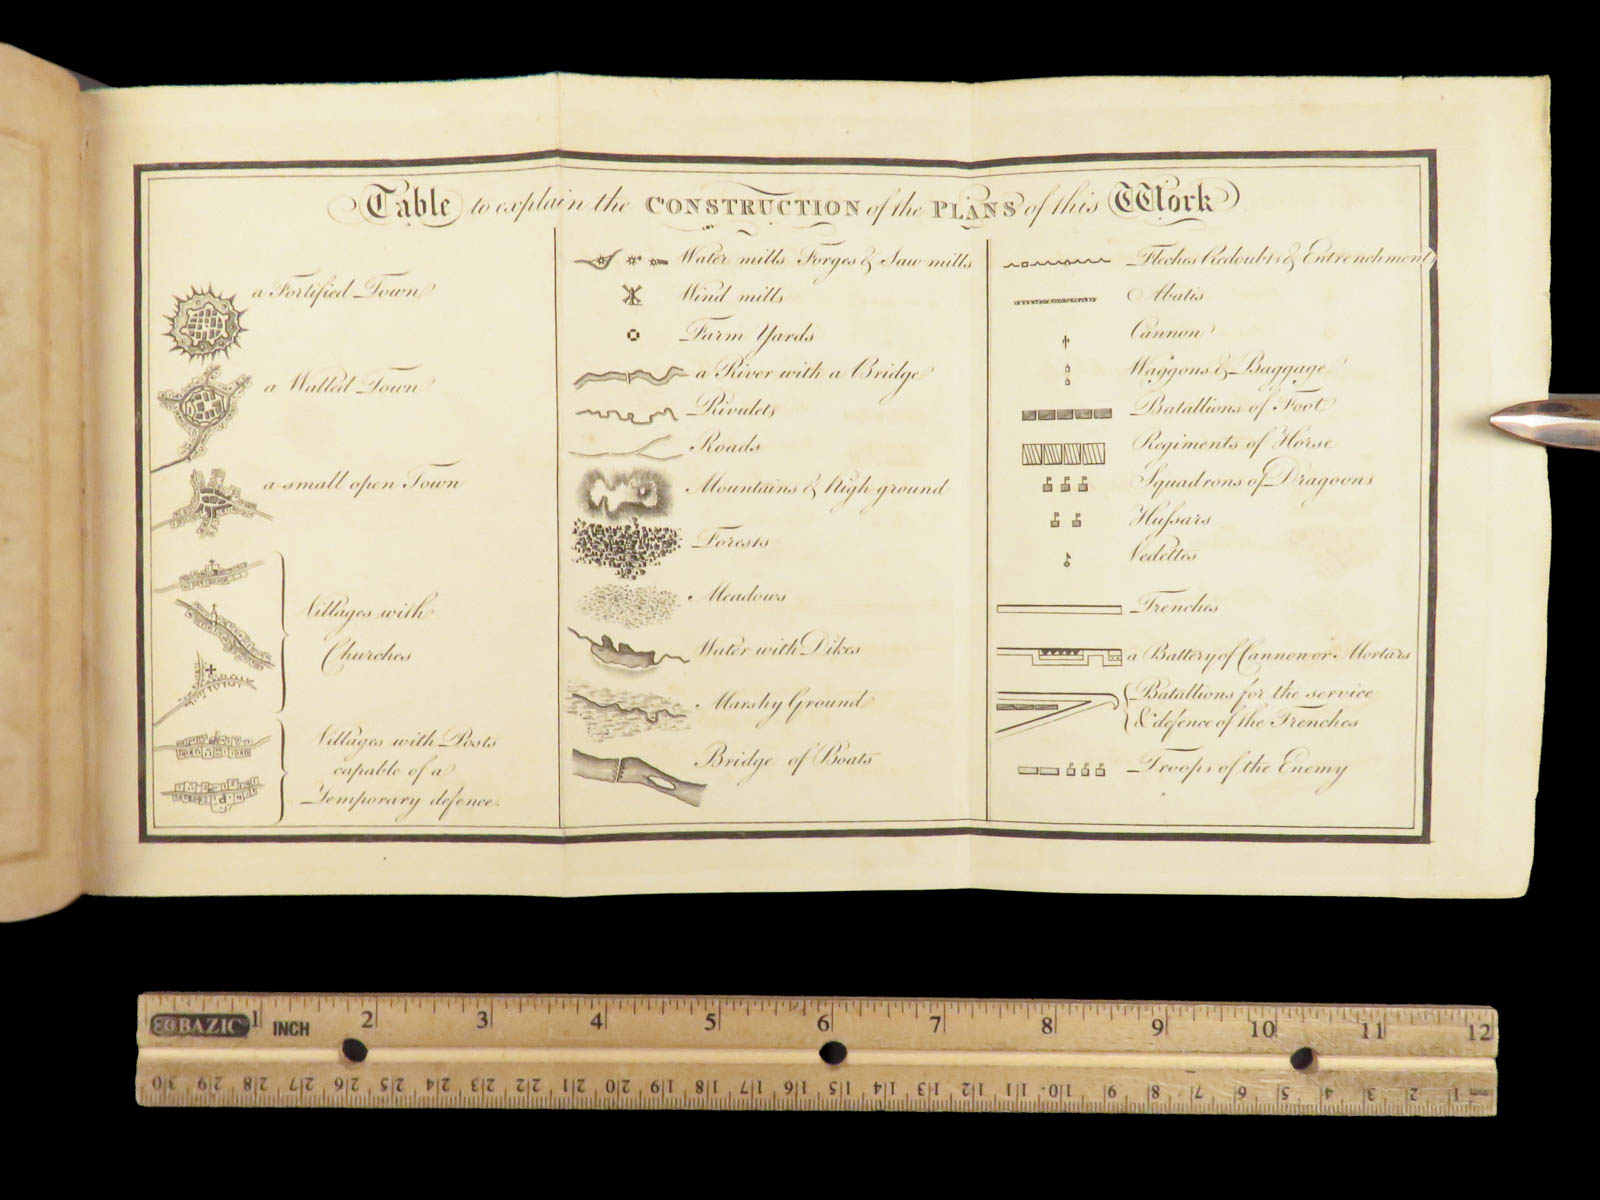 Table to explain the CONSTRUCTION of the PLANS of this Work
a Fortified Town
a Walled Town
a small open Town
Villages with
Churches
Villages with Posts
capable of a
Temporary defence.
Water mills Forges & Saw mills
Wind mills
Farm Yards
a River with a Bridge
Rivulets
Roads
Mountains & High ground
Forests
Meadows
Water with Dikes
Marshy Ground
Bridge of Boats
Fleches Redoubts & Entrenchment
Abatis
Cannon
Waggons & Baggage
Batallions of Foot
Regiments of Horse
Squadrons of Dragoons
Hussars
Vedettes
Trenches
a Battery of Cannon or Mortars
Batallions for the service
& defence of the Trenches
Troops of the Enemy
BAZIC 1 INCH 2 3 4 5 6 7 8 9 10 11 12
30 29 28 27 26 25 24 23 22 21 20 19 18 17 16 15 14 13 12 11 10 9 8 7 6 5 4 3 2 1 mm